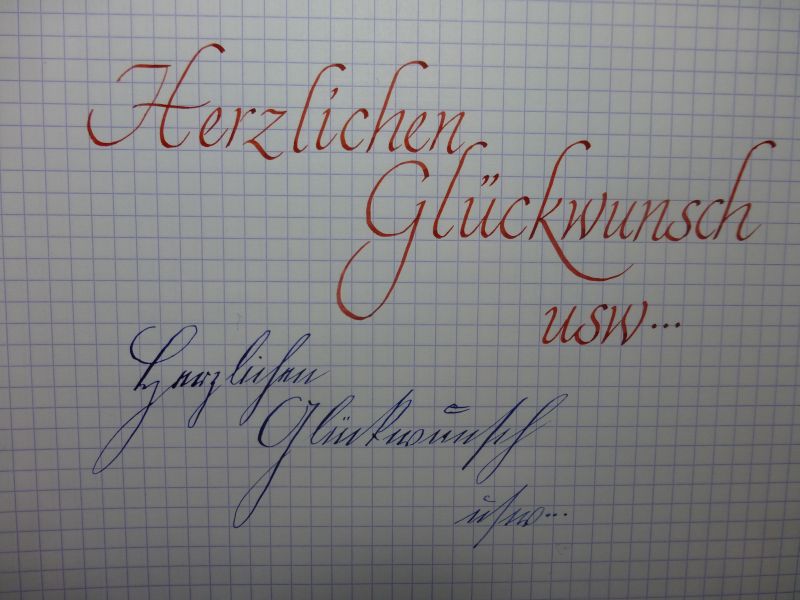 Herzlichen
Glückwunsch
usw...
Herzlichen
Glückwunsch
usw...